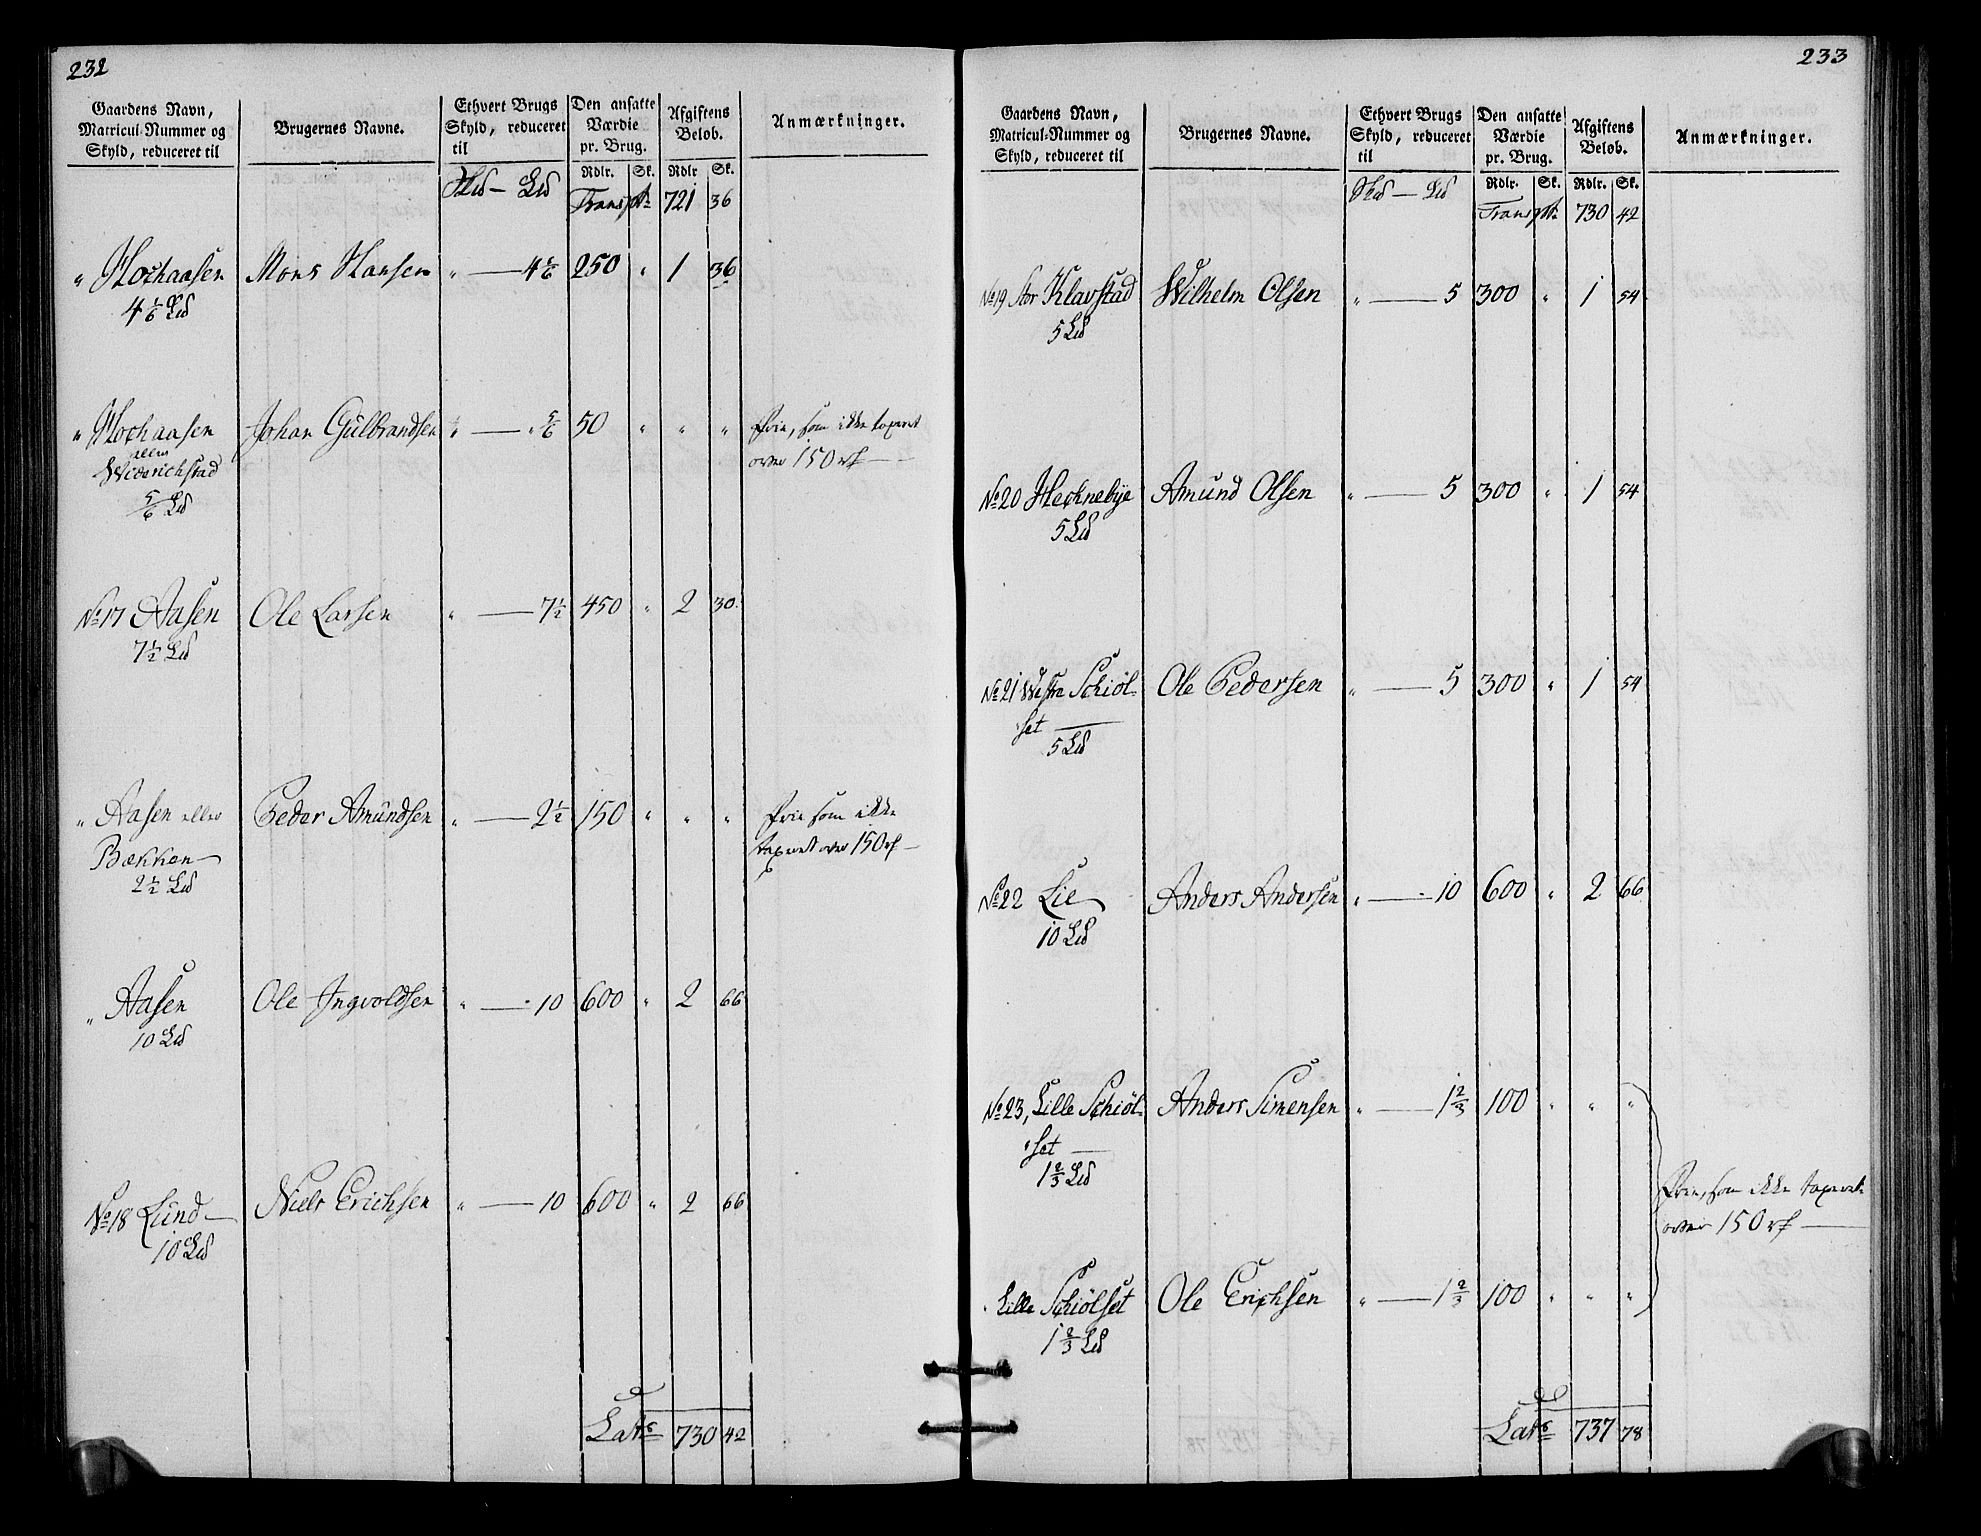 232
Gaardens Navn, Matricul-Nummer og Skyld, reduceret til | Brugernes Navne. | Ethvert Brugs Skyld, reduceret til | Den ansatte Værdie pr. Brug. | Afgiftens Beløb. | Anmærkninger.
Rdlr. Sk. Rdlr Sk.
Hud — Ld Transpt 721 36
" Hochaasen Mons Hansen " — 4 1/6 250 " 1 36
4 1/6 Ld
" Hochaasen Johan Gulbrandsen " — " 5/6 50 " " " Frie, som ikke taxeret
eller
over 150 rd —
Widerichstad
5/6 Ld
No 17 Aasen Ole Larsen " — 7 1/2 450 " 2 30
7 1/2 Ld
" Aasen eller Peder Amundsen " — 2 1/2 150 " " " Frie som ikke
Bækken — taxeret over 150 rd —
2 1/2 Ld
" Aasen Ole Ingvoldsen " — 10 600 " 2 66
10 Ld
No 18 Lund — Niels Erichsen " — 10 600 " 2 66
10 Ld
Lats 730 42
233
Gaardens Navn, Matricul-Nummer og Skyld, reduceret til | Brugernes Navne. | Ethvert Brugs Skyld, reduceret til | Den ansatte Værdie pr. Brug. | Afgiftens Beløb. | Anmærkninger.
Rdlr. Sk. Rdlr. Sk.
Hud — Ld Transpt 730 42
No 19 Stor Klavstad Wilhelm Olsen " — 5 300 " 1 54
5 Ld
No 20 Hecknebye Amund Olsen " — 5 300 " 1 54
5 Ld
No 21 Westre Schiøl- Ole Pedersen " — 5 300 " 1 54
set —
5 Ld
No 22 Lie Anders Andersen " — 10 600 " 2 66
10 Ld
No 23, Lille Schiøl- Anders Simensen " — 1 2/3 100 " " "
set —
1 2/3 Ld
Frie, som ikke taxeret
over 150 rd —
" Lille Schiølset Ole Erichsen " — 1 2/3 100 " " "
1 2/3 Ld
Lats 737 78